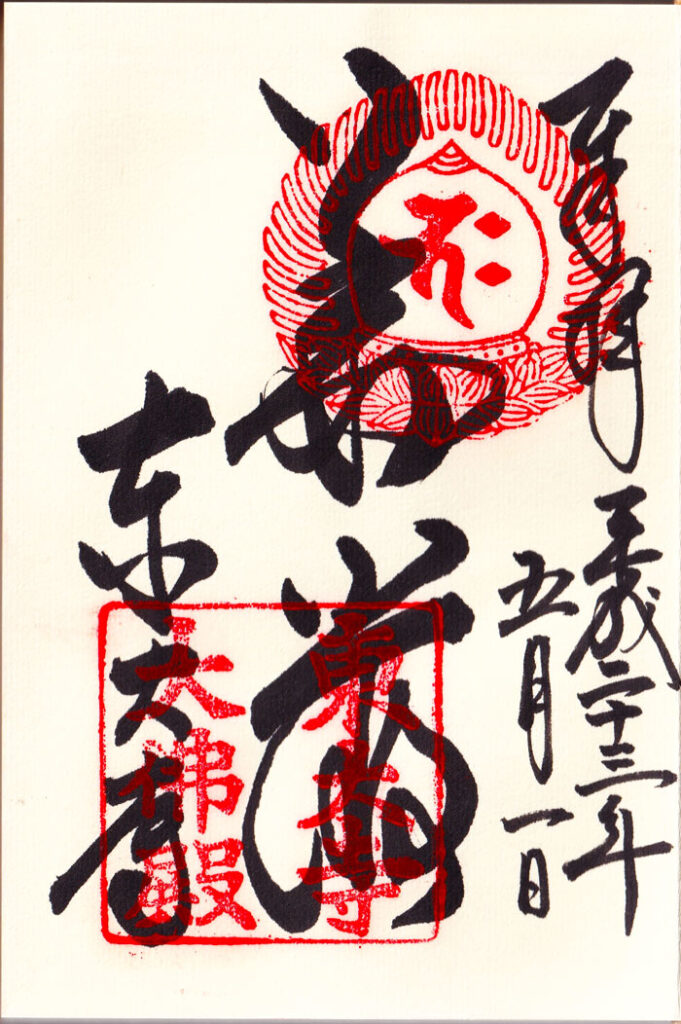 奉拝
平成二十三年
五月一日
華厳
東大寺
東大寺
大佛殿